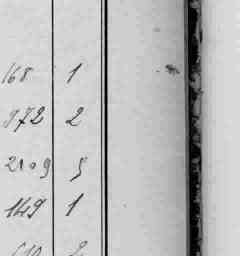 168 1
972 2
2109 5
149 1